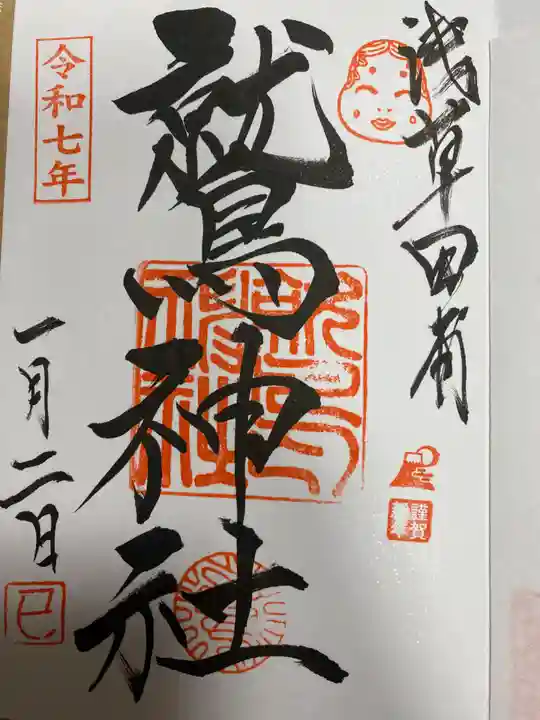 浅草田甫
謹賀
新年
鷲神社
令和七年
一月二日
巳